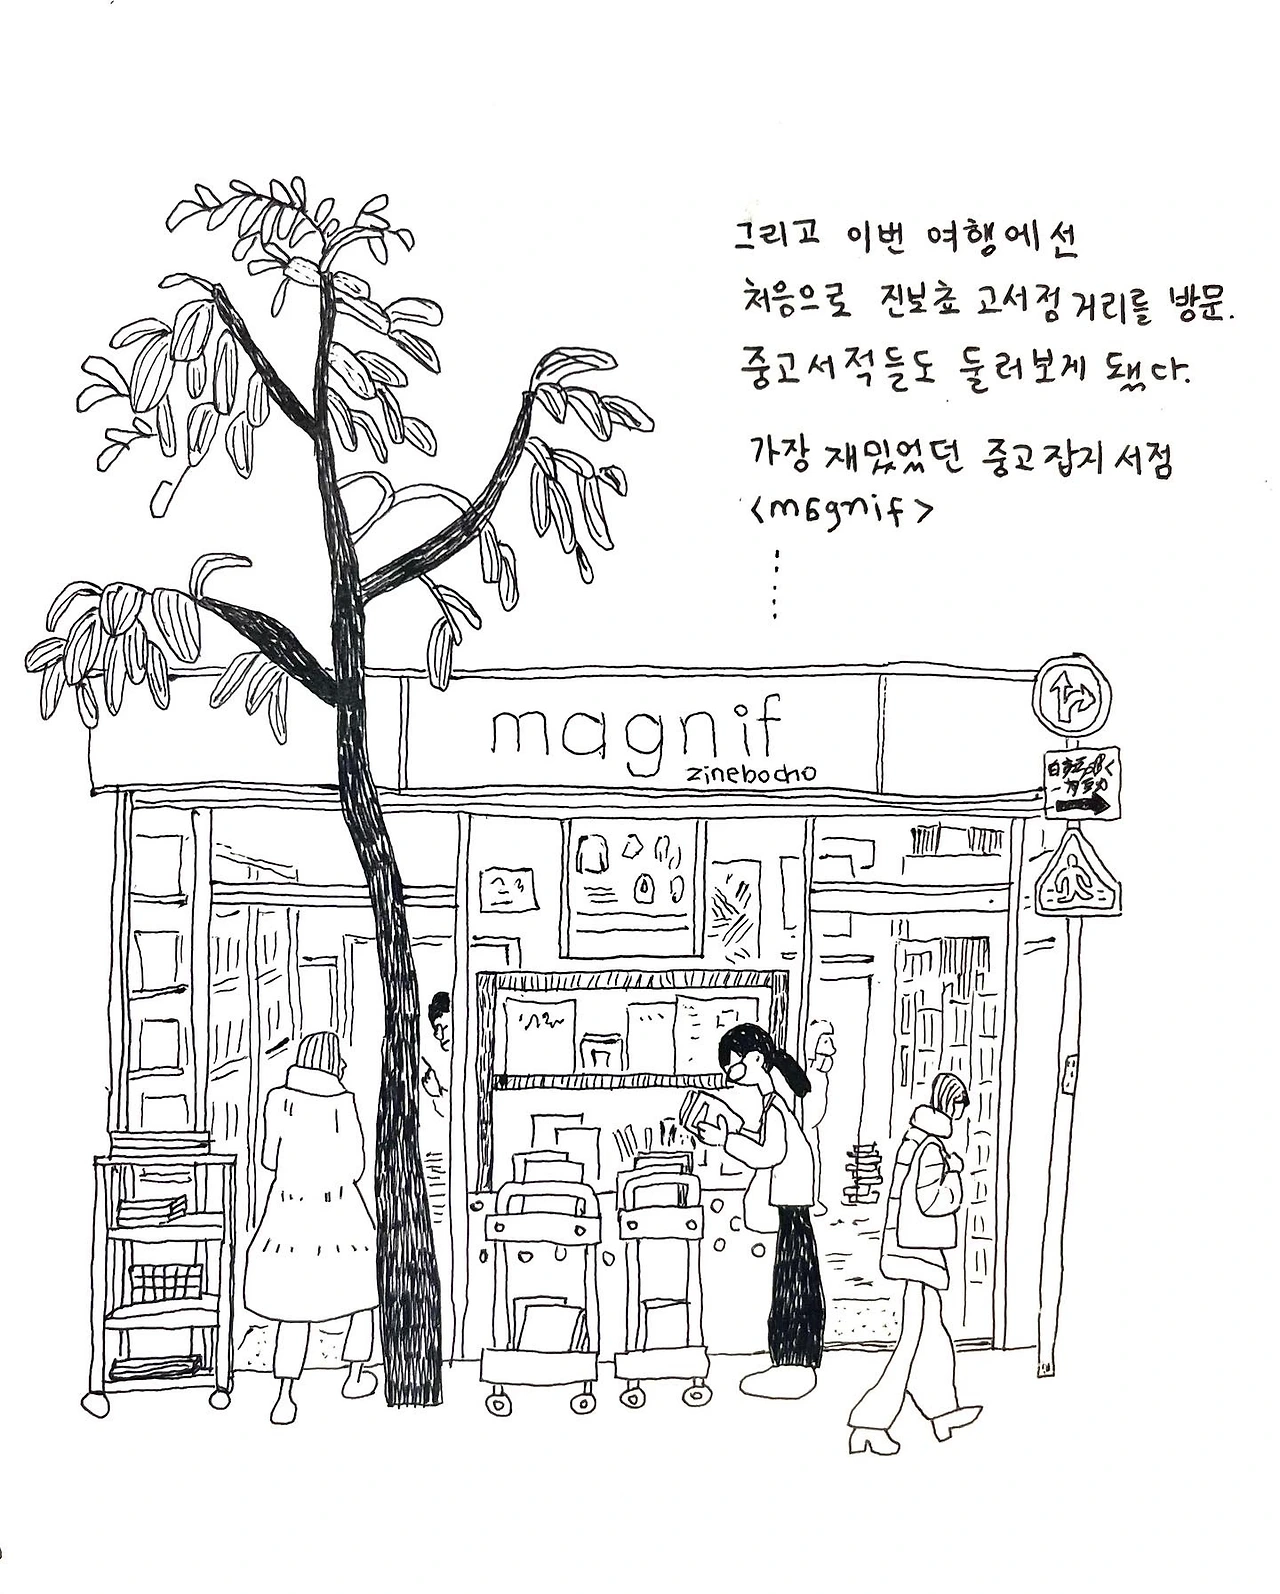 그리고 이번 여행에선
처음으로 진보쵸 고서점 거리를 방문.
중고서적들도 둘러보게 됐다.
가장 재밌었던 중고잡지 서점
<magnif>
magnif
zinebocho